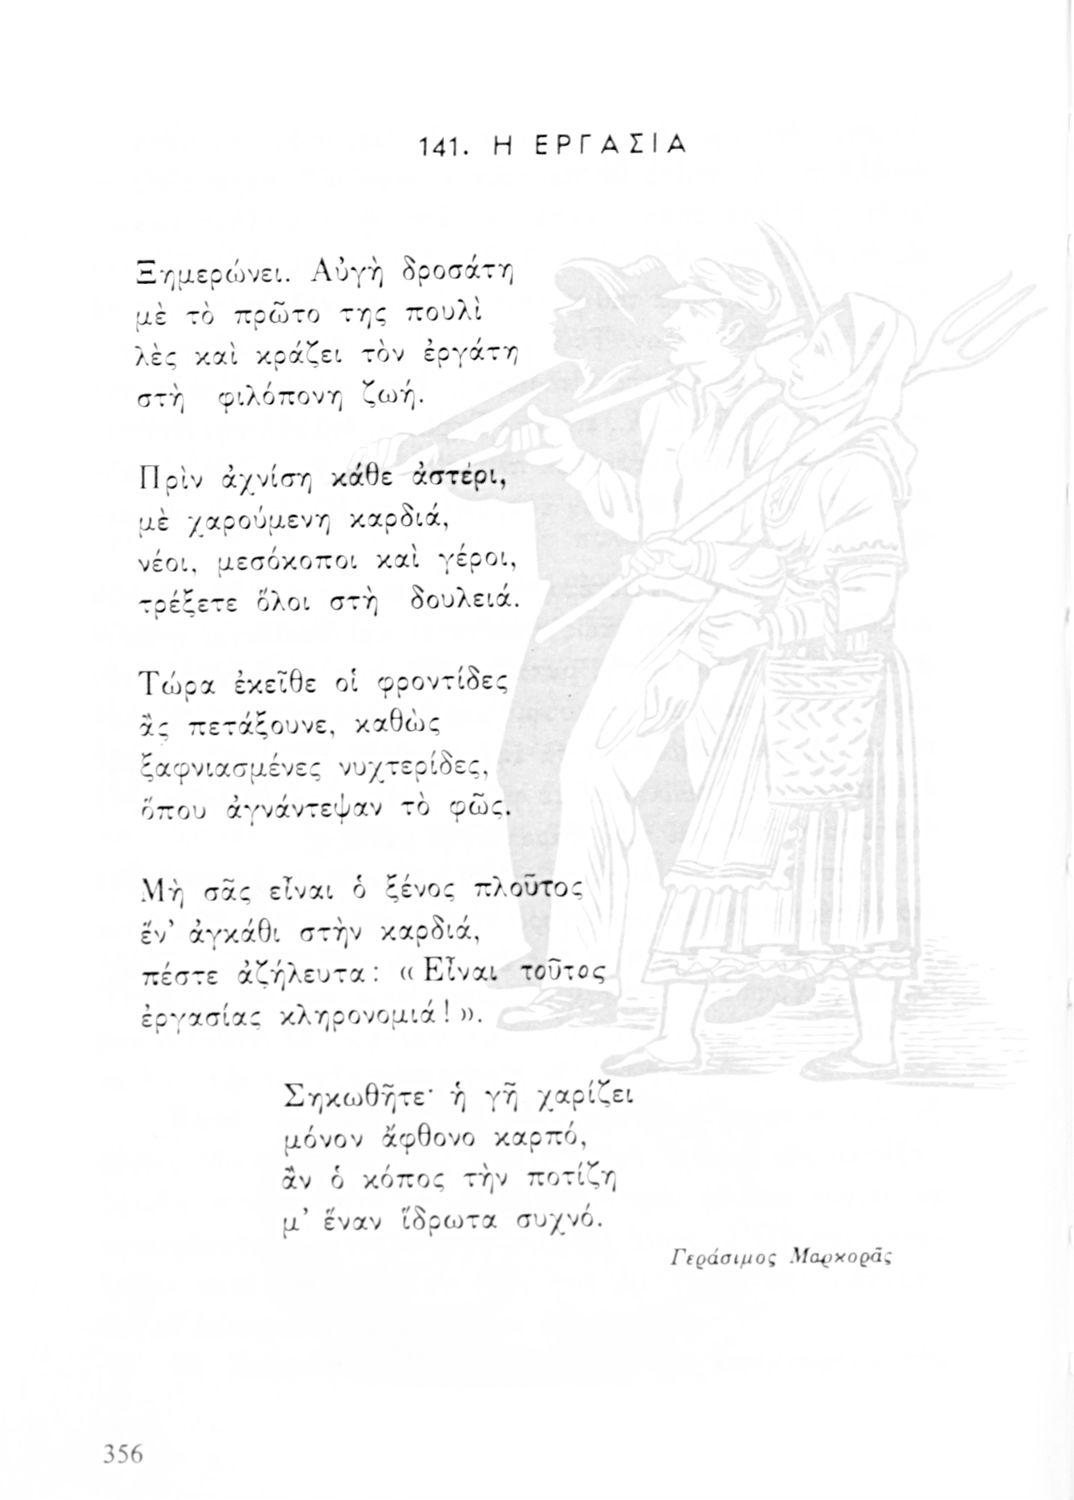 141. Η ΕΡΓΑΣΙΑ
Ξημερώνει. Αὐγὴ δροσάτη
μὲ τὸ πρῶτο της πουλὶ
λὲς καὶ κράζει τὸν ἐργάτη
στὴ φιλόπονη ζωή.
Πρὶν ἀχνίση κάθε ἀστέρι,
μὲ χαρούμενη καρδιά,
νέοι, μεσόκοποι καὶ γέροι,
τρέξετε ὅλοι στὴ δουλειά.
Τώρα ἐκεῖθε οἱ φροντίδες
ἂς πετάξουνε, καθὼς
ξαφνιασμένες νυχτερίδες,
ὅπου ἀγνάντεψαν τὸ φῶς.
Μὴ σᾶς εἶναι ὁ ξένος πλοῦτος
ἕν' ἀγκάθι στὴν καρδιά,
πέστε ἀζήλευτα : « Εἶναι τοῦτος
ἐργασίας κληρονομιά ! ».
Σηκωθῆτε· ἡ γῆ χαρίζει
μόνον ἄφθονο καρπό,
ἂν ὁ κόπος τὴν ποτίζη
μ' ἕναν ἵδρωτα συχνό.
Γεράσιμος Μαρκορᾶς
356